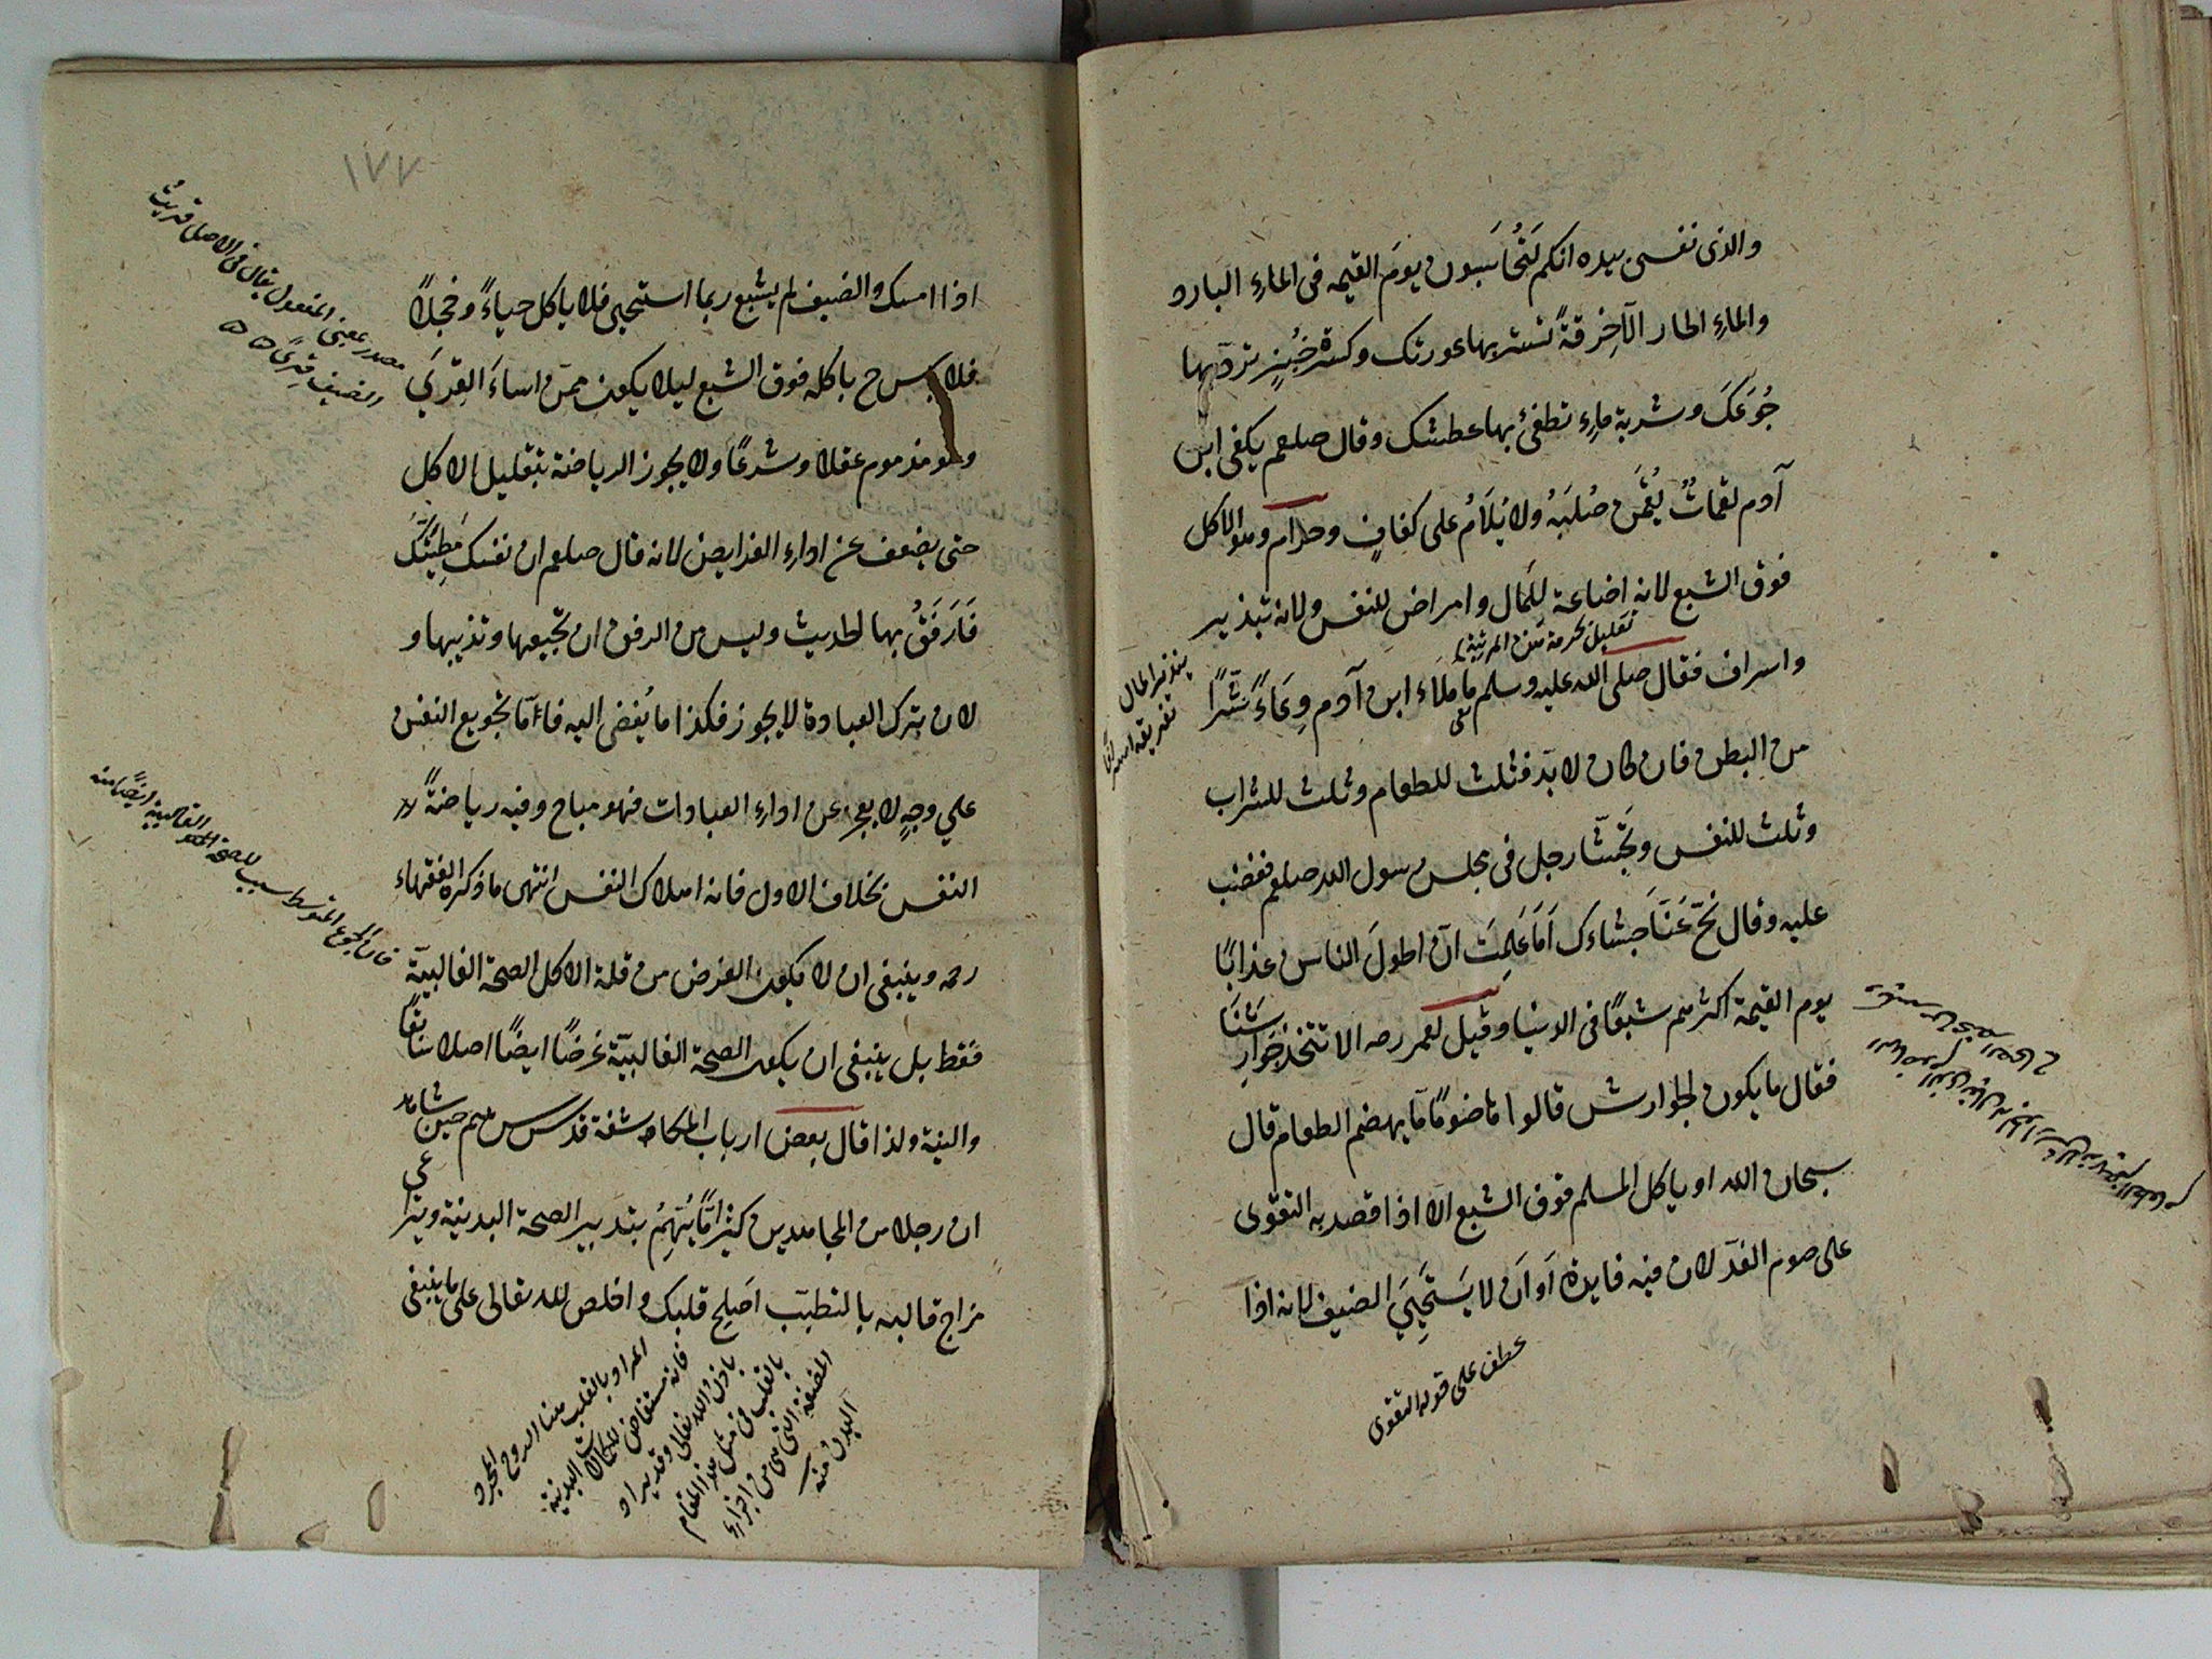 والذى نفسى بيده انكم لَتُحَاسَبون يومَ القيمه فى الماء البارد
والماء الحار الا خِرقةً تستر بها عورتك وكسرة خُبزٍ تردّ بها
جُوعَكَ وشربة ماء تطفئ بها عطشك وقال صلعم يكفى ابن
آدم لقماتٌ يُقمن صُلبَهُ ولا يُلاَمُ على كفافٍ وحرام وهو الاكل
فوق الشبع لانه اضاعة للمال وامراض للنفس ولانه تبذير
واسراف فقال صلى الله عليه وسلم ما ملاء ابن آدم وِعَاءً شرًّا
من البطن فان كان لابدّ فثلث للطعام وثلث للشراب
وثلث للنفس وتَجشّا رجل فى مجلس رسول الله صلعم فغضب
عليه وقال نحّ عَنّا جشاءك اَمَا عَلِمتَ انّ اطولَ الناس عذابًا
يوم القيمة اكثرهم شبعًا فى الدنيا وقيل لعمر رضه الا تتخذ جوارشنًا
فقال ما يكون الجوارش قالوا هاضومًا يهضم الطعام قال
سبحان الله او ياكل المسلم فوق الشبع الا اذا قصد به التقوى
على صوم الغد لان فيه فايدة اَو اَن لا يَستَحيِىَ الضيف لانه اذا
عطف على قوله التقوى
تبذير المال
تفريقه اسرافا
١٧٧
اذا امسك والضيف لم يشبع ربما استحيى فلا ياكل حياءً وخجلاً
فلا باس ح باكله فوق الشبع ليلا يكون ممّن اساءَ القِرىَ
وهو مذموم عقلا وشرعًا ولا يجوز الرياضة بتقليل الاكل
حتى يضعف عن اداء الفرايض لانه قال صلعم ان نفسك مَطِيّتُكَ
فَارفَقْ بها الحديث وليس من الرفق ان تجيعها وتذيبها و
لان ترك العبادة لا يجوز فكذا ما يُفضى اليه فاَمّا تجويع النفس
على وجهٍ لا يعجز عن اداء العبادات فهو مباح وفيه رياضةُ
النفس بخلاف الاول فانه اهلاك النفس انتهى ما ذكره الفقهاء
رحمه وينبغى ان لا يكون الغرض من قلة الاكل الصحة القالبيّة
فقط بل ينبغى ان يكون الصحة القالبيّة غرضًا ايضًا اصلا تابعًا
والنية ولذا قال بعض ارباب المكاشفة قدس سرهم حين شاهد
ان رجلا من المجاهدين كثيرًا مّا يُتَهِمُ بتدبير الصحة البدنية ويراعى
مزاج قالبه بالتطيّب اَصلِح قلبك واخلص لله تعالى على ما ينبغى
مصدر بمعنى المفعول يقال فى الاصل قريتُ
الضيف قِرىً
فان الجوع المتوسط سبب للصحة القالبية ايضًا منه
المراد بالقلب هنا الروح المجرد
فانه مستفاض الكمالات البدنية
باذن الله تعالى وقد يراد
بالقلب فى مثل هذا المقام
المضغة التى هى من اجزاء
البدن منه